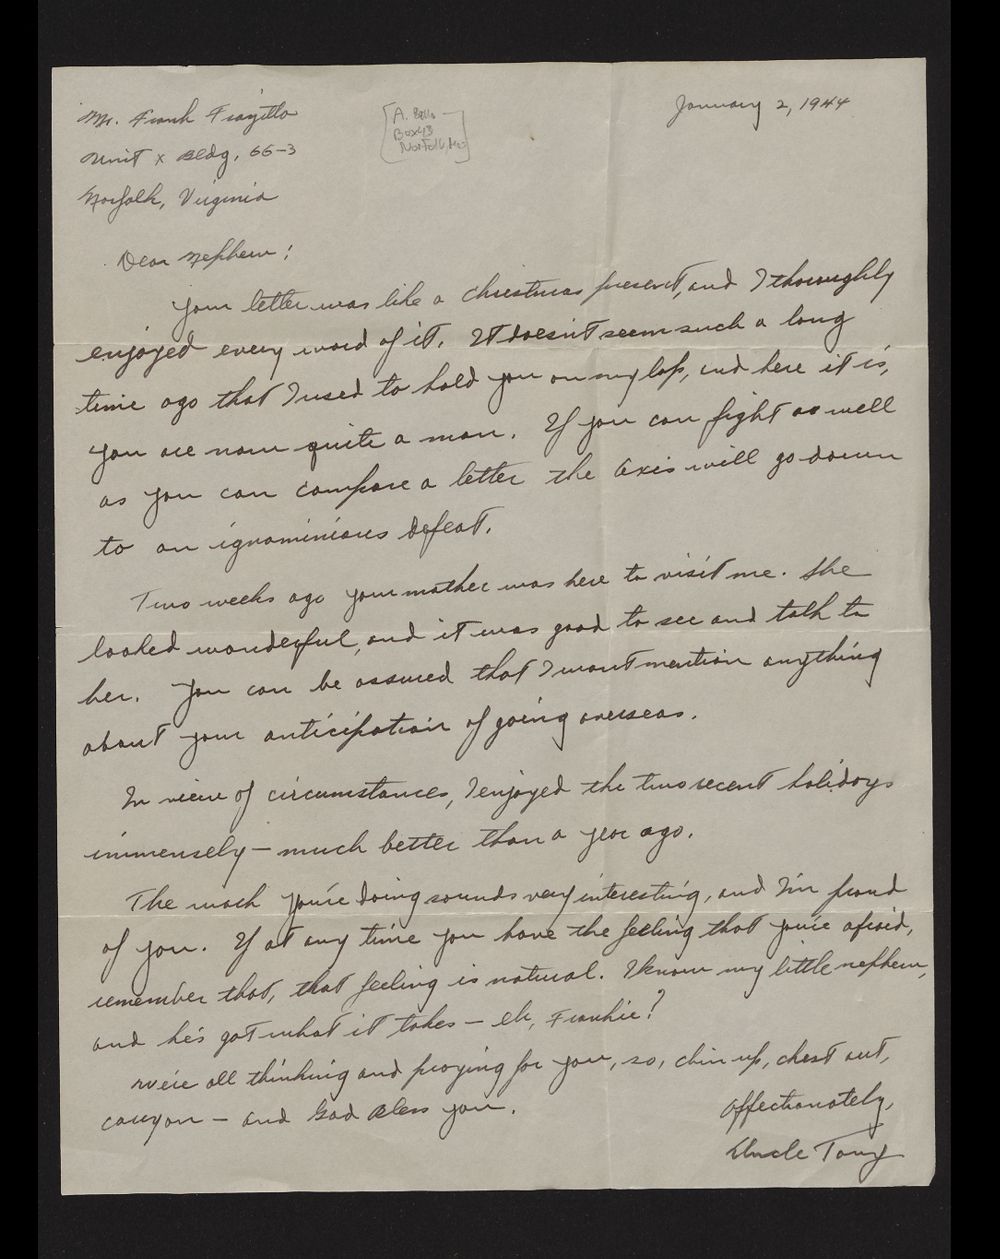 January 2, 1944
Mr. Frank Frazitto
Unit X Bldg, 66-3
Norfolk, Virginia
A. Bello
Box 43
Norfolk, Mass
Dear Nephew;
Your letter was like a Christmas present, and I thoroughly
enjoyed every word of it. It doesn't seem such a long
time ago that I used to hold you on my lap, and here it is,
you are now quite a man. If you can fight as well
as you can compose a letter the Axis will go down
to an ignominious defeat.
Two weeks ago your mother was here to visit me. She
looked wonderful, and it was good to see and talk to
her. You can be assured that I wont mention anything
about your anticipation of going overseas.
In view of circumstances, I enjoyed the two recent holidays
immensely – much better than a year ago.
The work you're doing sounds very interesting, and I'm proud
of you. If at any time you have the feeling that you're afraid,
remember that, that feeling is natural. I know my little nephew,
and he's got what it takes – eh, Frankie?
We're all thinking and praying for you, so, chin up, chest out,
carry on – and God Bless you.
Affectionately,
Uncle Tony